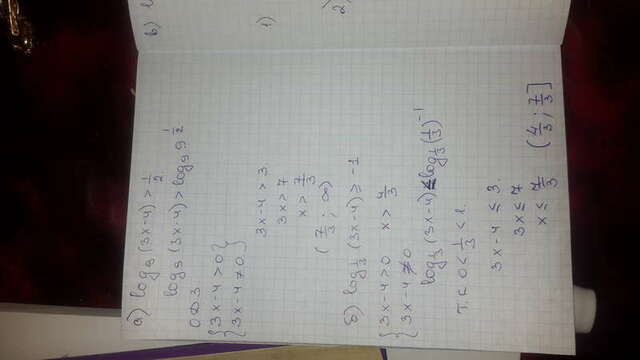 а) log₉(3x-4) > 1/2
log₉(3x-4) > log₉ 9^(1/2)
ОДЗ
{3x-4 > 0}
{3x-4 ≠ 0}
3x-4 > 3
3x > 7
x > 7/3
(7/3 ; ∞)
б) log_(1/3)(3x-4) ≥ -1
{3x-4 > 0 x > 4/3
{3x-4 ≠ 0
log_(1/3)(3x-4) ≤ log_(1/3)(1/3)^(-1)
т.к 0 < 1/3 < 1.
3x-4 ≤ 3.
3x ≤ 7
x ≤ 7/3 (4/3 ; 7/3]
в)
1)
2)